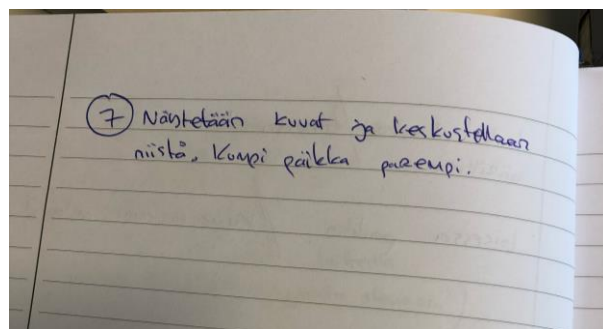 7 Näytetään kuvat ja keskustellaan
niistä. Kumpi paikka parempi.